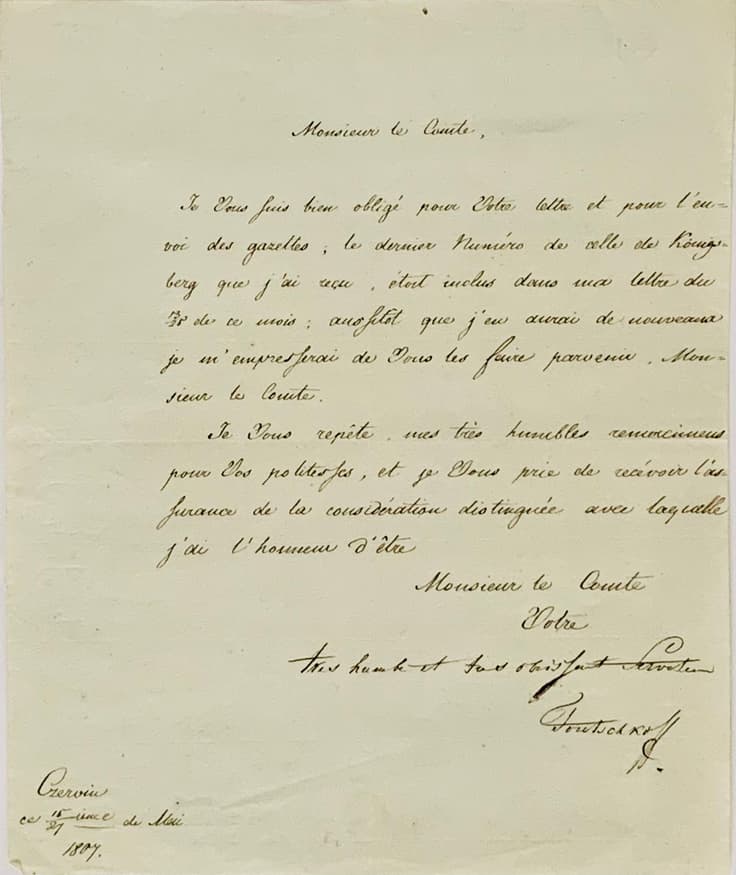 Monsieur le Comte,
Je Vous suis bien obligé pour Votre lettre et pour l'en=
voi des gazettes; le dernier Numéro de celle de Königs=
berg que j'ai reçu, étoit inclus dans ma lettre du
de ce mois; aussitôt que j'en aurai de nouveaux
je m'empresserai de Vous les faire parvenir, Mon=
sieur le Comte.
Je Vous repête mes très humbles remercimens
pour Vos politesses, et je Vous prie de recévoir l'as=
surance de la considération distinguée avec laquelle
j'ai l'honneur d'être
Monsieur le Comte
Votre
très humb et très obéissant Serviteur
Toutschkoff
Czervin
ce 15/27 ieme de Mai
1807.